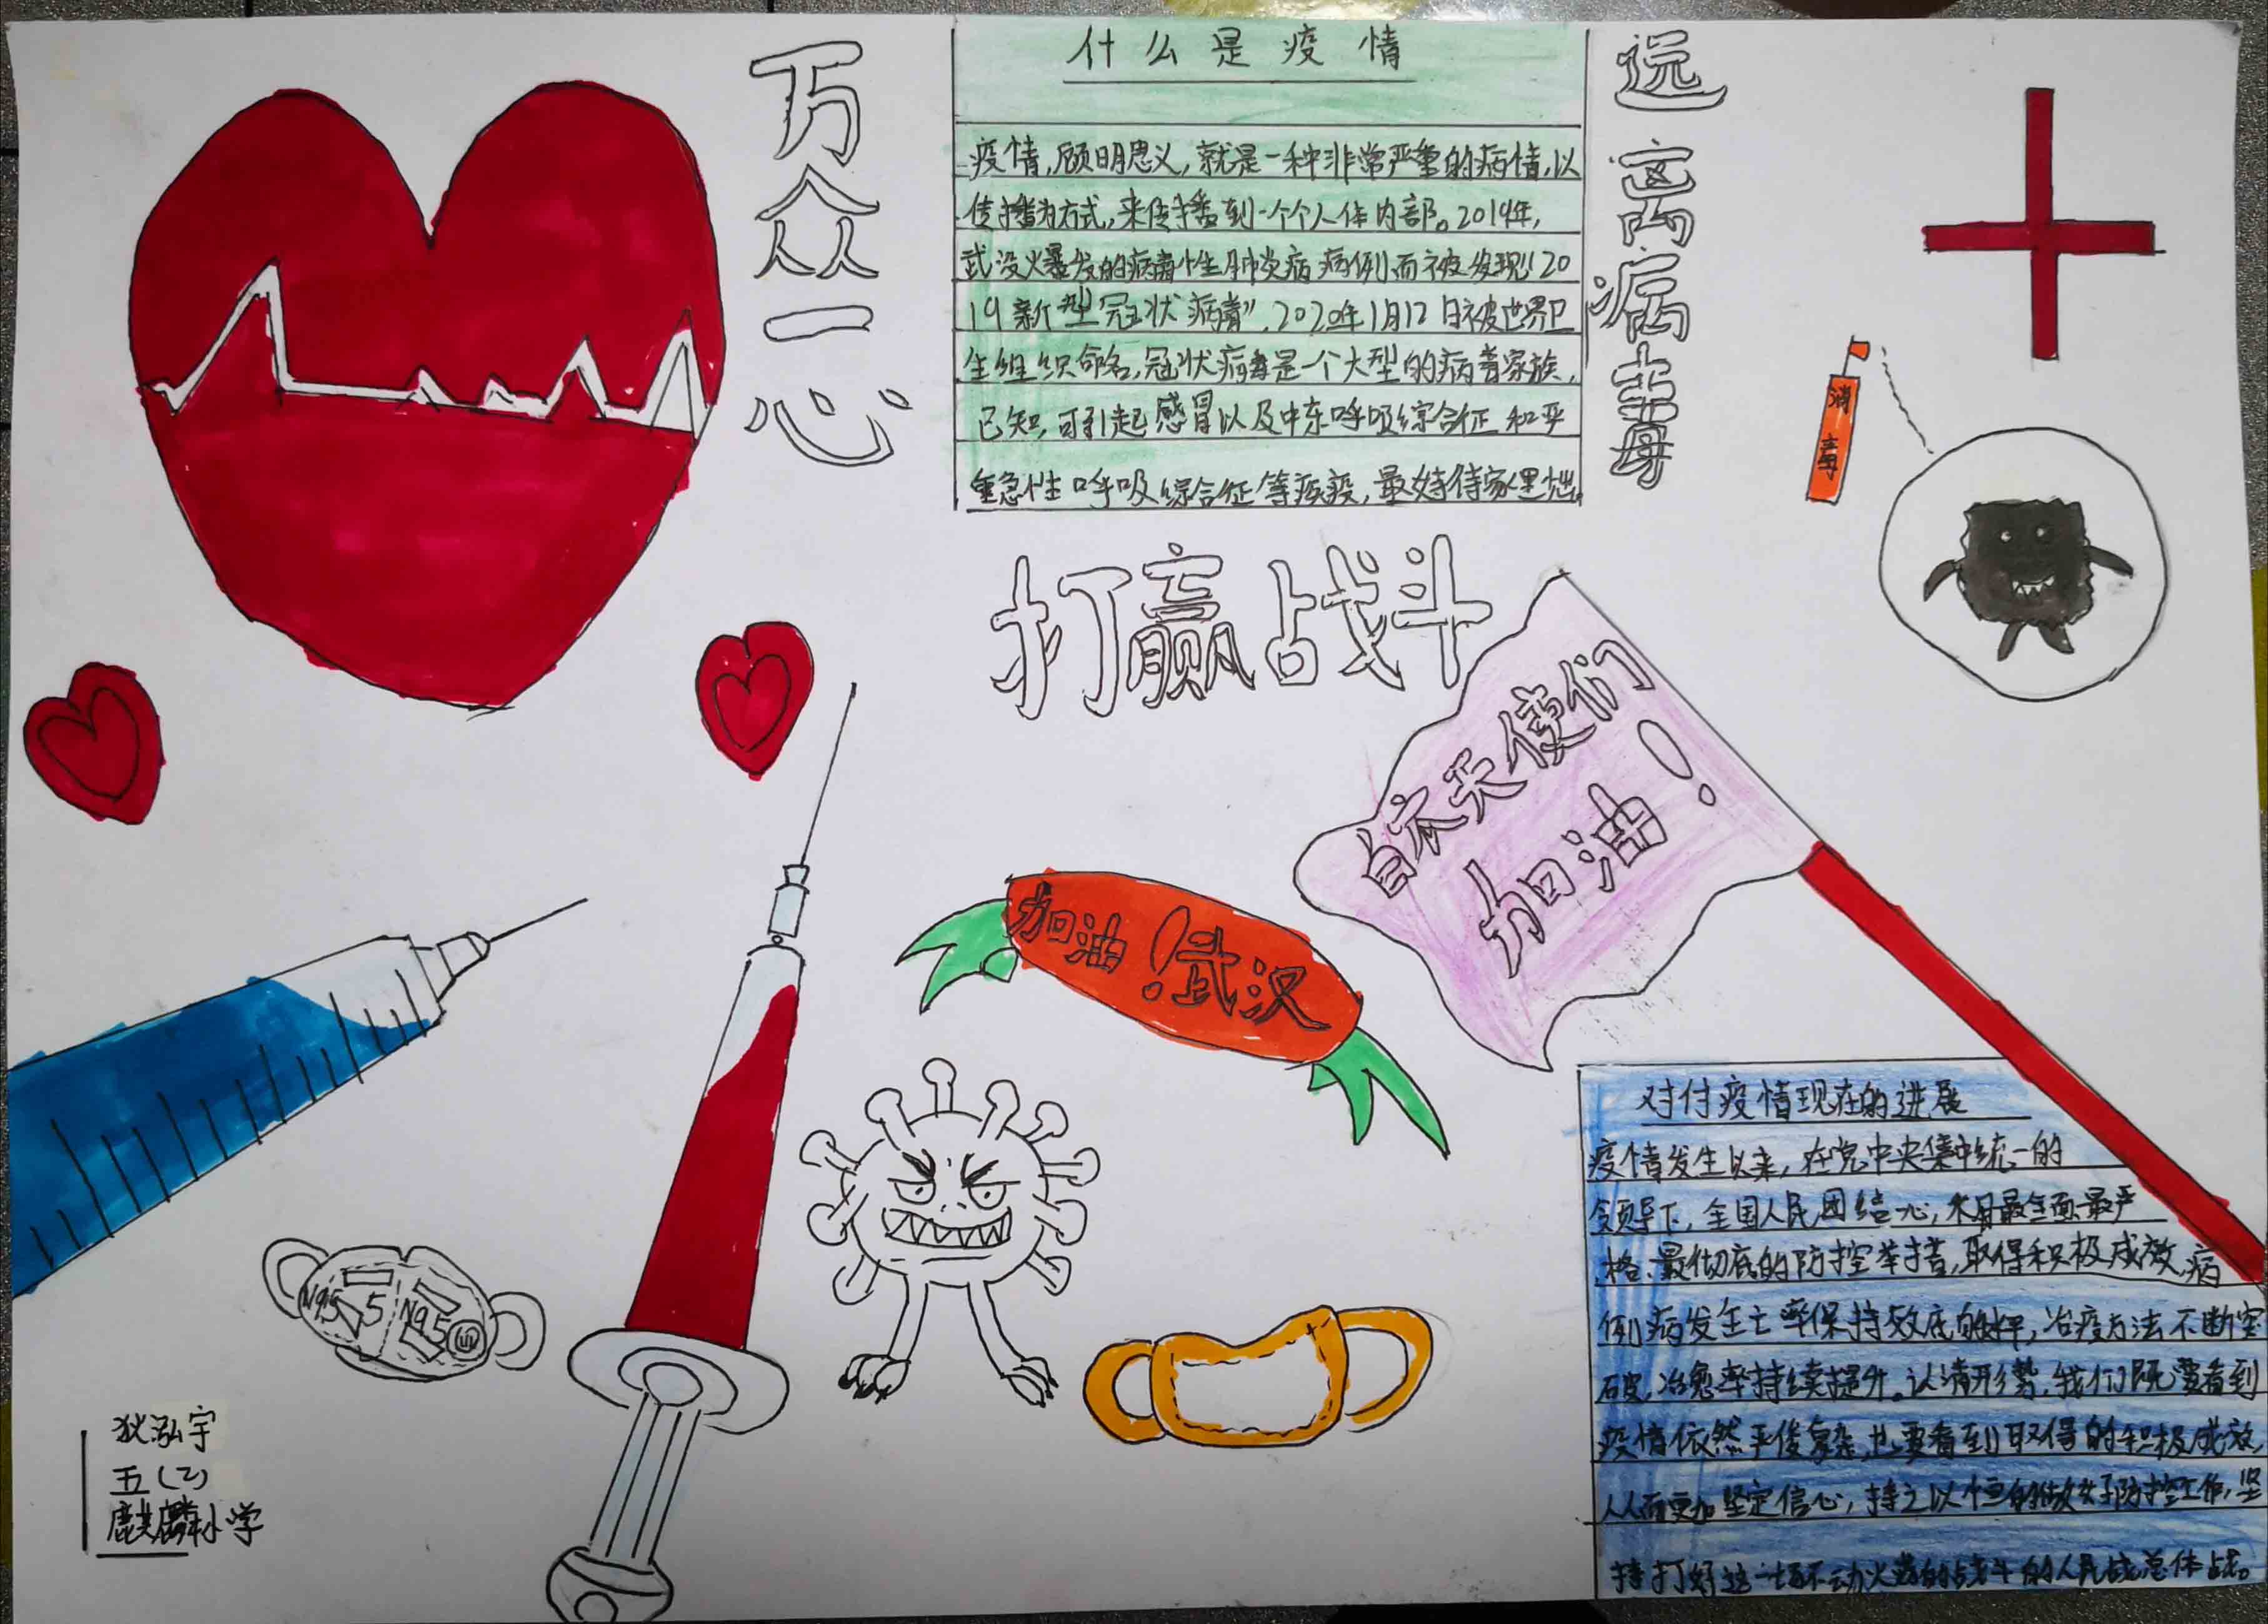 万众一心
什么是疫情
疫情,顾明思义,就是一种非常严重的病情,以
传播为方式,来传播到一个个人体内部。2019年,
武汉火爆发的病毒性肺炎病病例而被发现“20
19新型冠状病毒”,2020年1月12日被世界卫
生组织命名,冠状病毒是一个大型的病毒家族,
已知,可引起感冒以及中东呼吸综合征和严
重急性呼吸综合征等疾疫,最好待家里
远离病毒
消毒
打赢战斗
白衣天使们
加油!
加油!武汉
N95
5
N95
对付疫情现在的进展
疫情发生以来,在党中央集中统一的
领导下,全国人民团结一心,采用最全面最严
格、最彻底的防控举措,取得积极成效,病
例病发生亡率保持效底的水平,冶疫方法不断突
破,冶愈率持续提升。认清形势,我们既要看到
疫情依然严俊复杂,也要看到取得的积极成效,
从而更加坚定信心,持之以恒的做好防控工作,坚
持打好这一场不动火药的战斗的人民战总体战。
狄泓宇
五(2)
麒麟小学